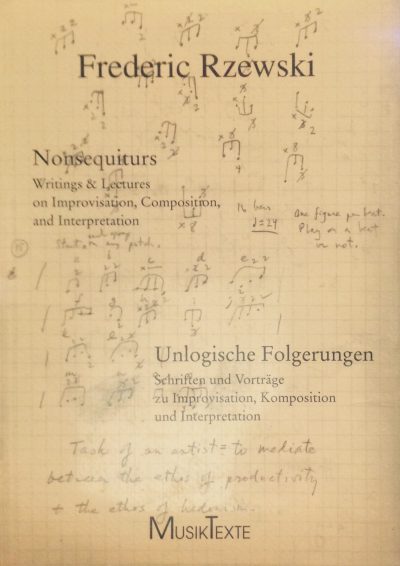 Frederic Rzewski
Nonsequiturs
Writings & Lectures
on Improvisation, Composition,
and Interpretation
16 bars
♩=24
One figure per beat.
Play on a beat
or not.
Start on any pitch.
Unlogische Folgerungen
Schriften und Vorträge
zu Improvisation, Komposition
und Interpretation
Task of an artist = to mediate
between the ethos of productivity
+ the ethos of hedonism.
MUSIKTEXTE